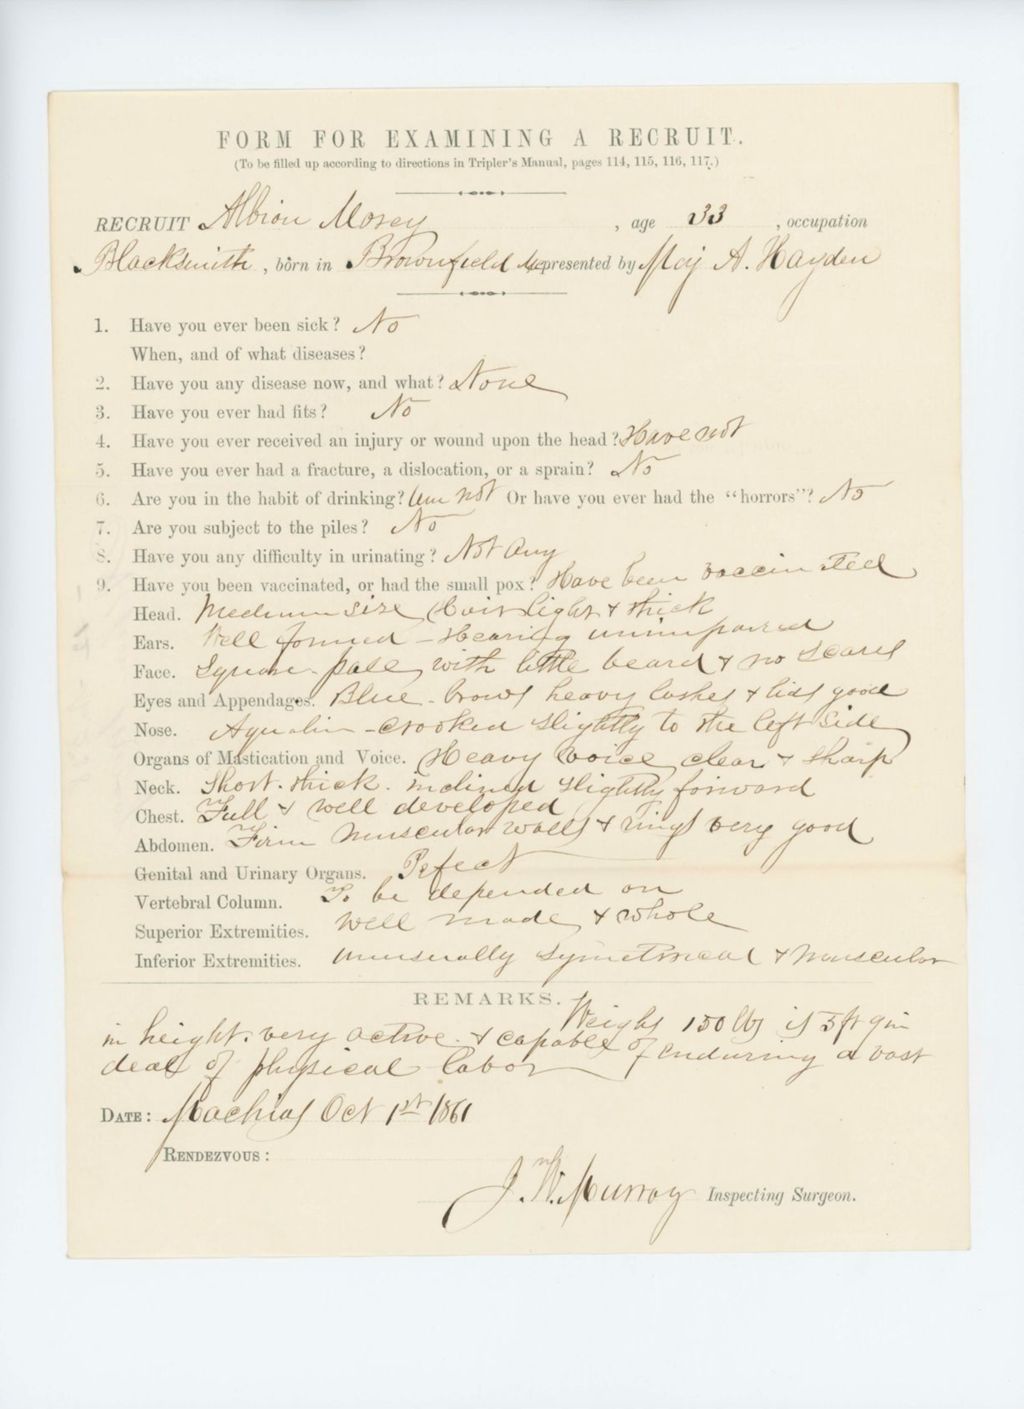 FORM FOR EXAMINING A RECRUIT.
(To be filled up according to directions in Tripler's Manual, pages 114, 115, 116, 117.)
RECRUIT Albion Morey, age 33, occupation
Blacksmith, born in Brownfield Me presented by Maj A. Hayden
1. Have you ever been sick? No
When, and of what diseases?
2. Have you any disease now, and what? None
3. Have you ever had fits? No
4. Have you ever received an injury or wound upon the head? Have not
5. Have you ever had a fracture, a dislocation, or a sprain? No
6. Are you in the habit of drinking? Am not Or have you ever had the "horrors"? No
7. Are you subject to the piles? No
8. Have you any difficulty in urinating? Not Any
9. Have you been vaccinated, or had the small pox? Have been vaccinated
Head. Medium size, hair light & thick
Ears. Well formed - Hearing unimpaired
Face. Square - pale, with little beard & no scars
Eyes and Appendages. Blue - brows heavy lashes & lids good
Nose. Aqualin - crooked slightly to the left side
Organs of Mastication and Voice. Heavy voice, clear & sharp
Neck. Short. thick. inclined slightly forward
Chest. Full & well developed
Abdomen. Firm muscular walls & rings very good
Genital and Urinary Organs. Pefect
Vertebral Column. To be depended on
Superior Extremities. Well made & whole
Inferior Extremities. Unusually symetrical & muscular
REMARKS. Weighs 150 lbs is 5 ft 9 in
in height. very active & capable of enduring a vast
deal of physical labor
DATE: Machias Oct 1st 1861
RENDEZVOUS:
J. W. Murray Inspecting Surgeon.